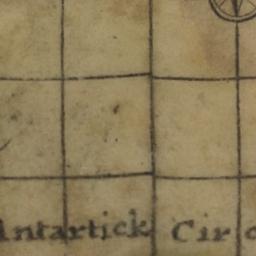 Antartick Circ